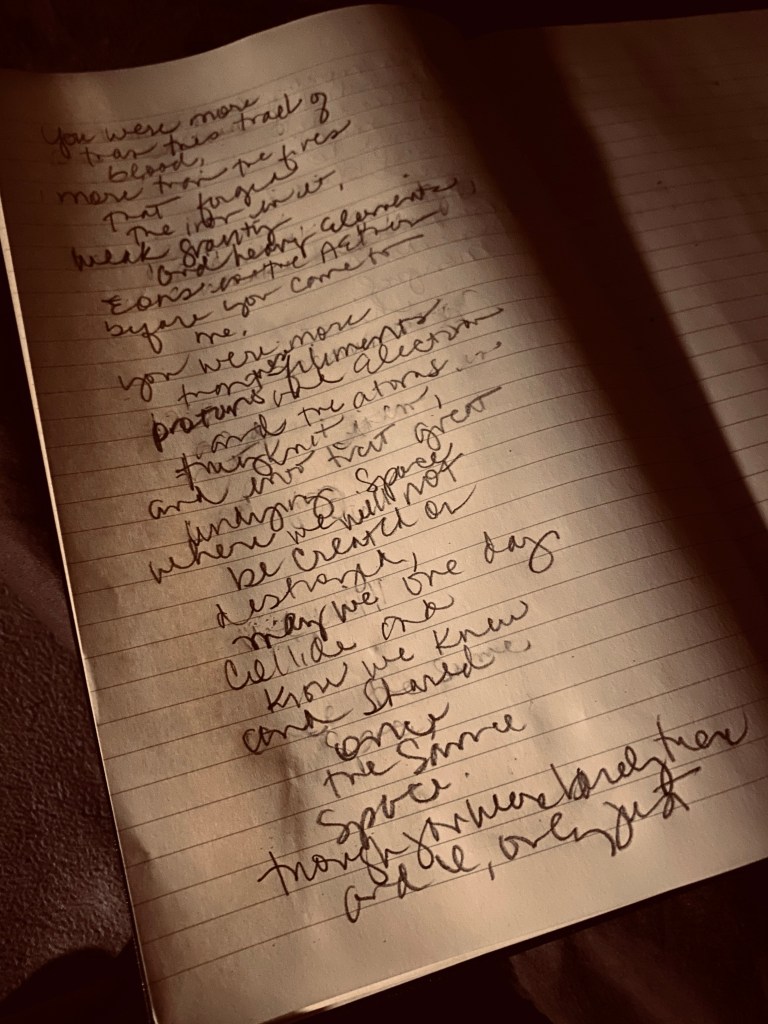 You were more
than this trael of
blood,
more than the fires
that forged
the iron in it,
weak gravity
and heavy elements
Eons in the Aether
before you came to
me.
you were more
than filaments
protons and electrons
and the atoms
they knit
and into that great
undying space
where we will not
be created or
destroyed,
may we one day
collide and
know we knew
and shared
once
the same
space.
though you were barely there
and I, only just